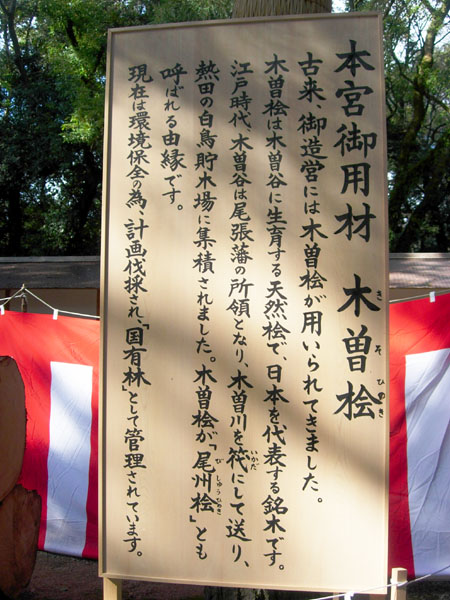 本宮御用材 木曽桧
きそひのき
古来、御造営には木曽桧が用いられてきました。
木曽桧は木曽谷に生育する天然桧で、日本を代表する銘木です。
江戸時代、木曽谷は尾張藩の所領となり、木曽川を筏にして送り、
いかだ
熱田の白鳥貯木場に集積されました。木曽桧が「尾州桧」とも
びしゅうひのき
呼ばれる由縁です。
現在は環境保全の為、計画伐採され、「国有林」として管理されています。